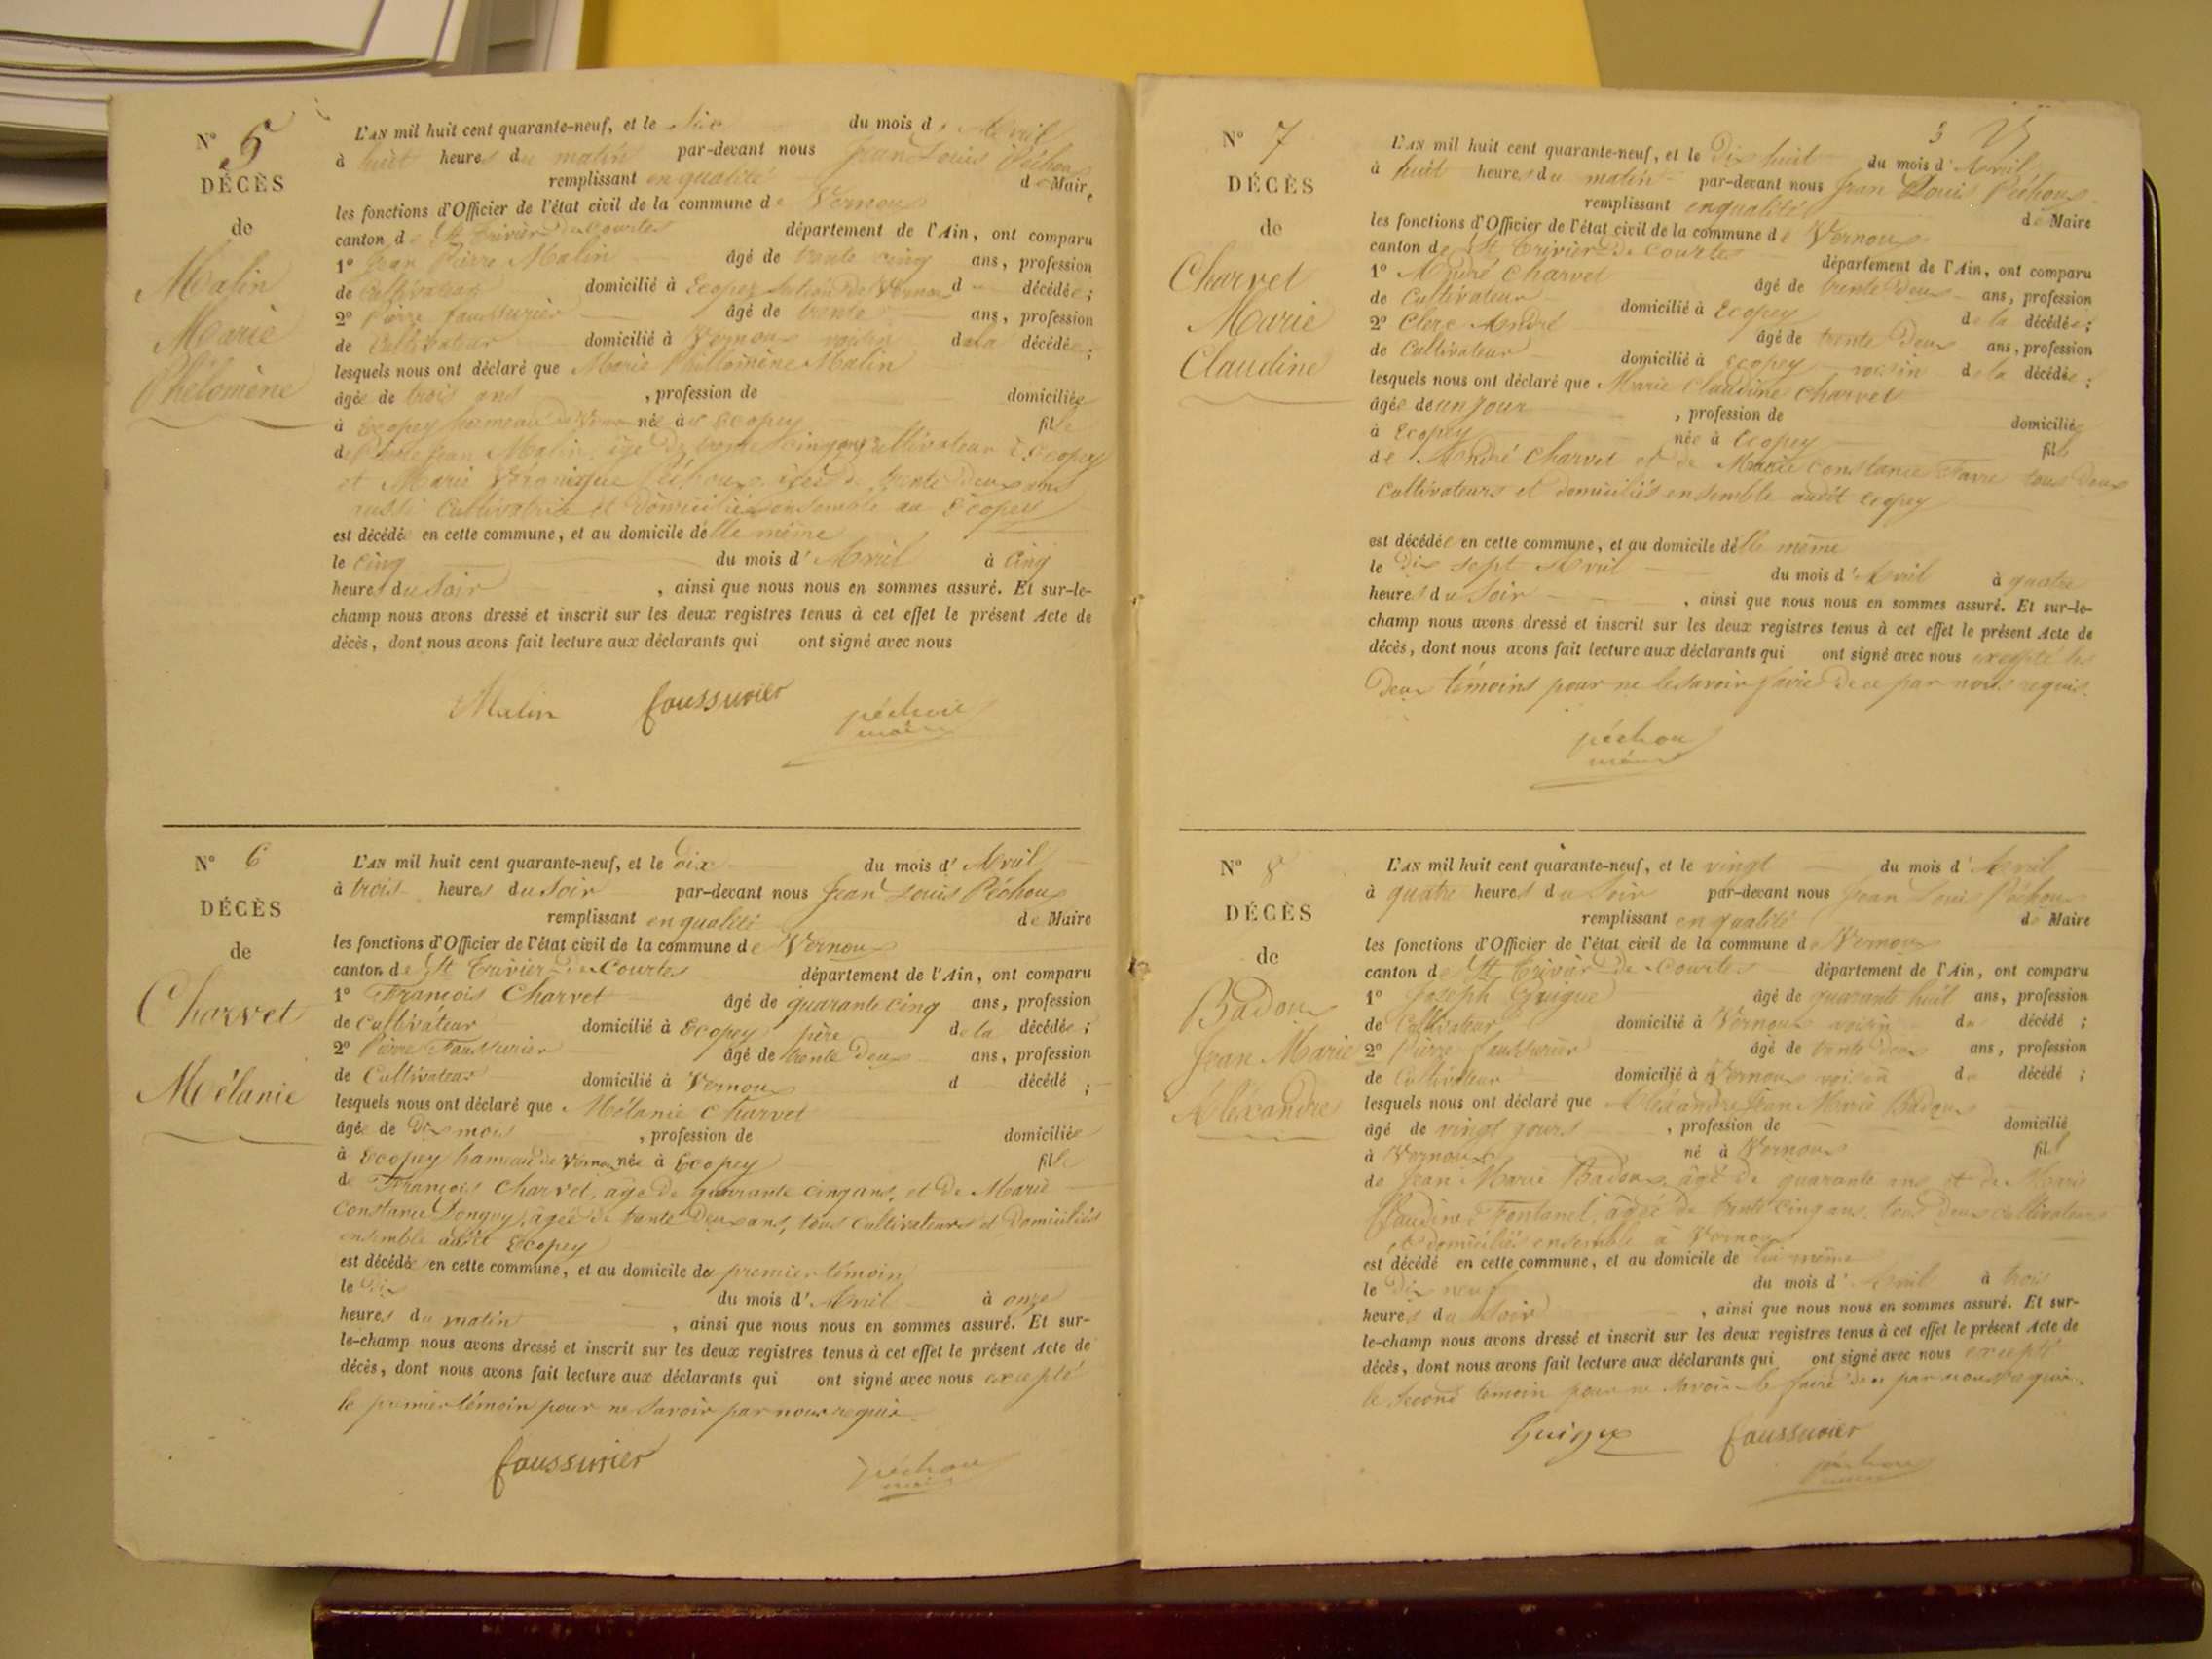 N° 5
DÉCÈS
de
Malin
Marie
Phélomène
L'AN mil huit cent quarante-neuf, et le Six du mois d'Avril
à huit heures du matin par-devant nous Jean Louis Péchoux
remplissant en qualité de Maire
les fonctions d'Officier de l'état civil de la commune de Vernoux
canton de St Trivier de Courtes département de l'Ain, ont comparu
1° Jean Pierre Malin âgé de trente cinq ans, profession
de Cultivateur domicilié à Ecopey section de Vernoux d décédée ;
2° Pierre Faussurier âgé de trente ans, profession
de Cultivateur domicilié à Vernoux voisin de la décédée ;
lesquels nous ont déclaré que Marie Phillomène Malin
âgée de trois ans , profession de domiciliée
à Ecopey hameau de Vernoux née à Ecopey fille
de Jean Malin, âgé de trente cinq ans, cultivateur à Ecopey
et Marie Véronique Péchoux, âgée de trente deux ans
aussi Cultivatrice et domiciliés ensemble au Ecopey
est décédée en cette commune, et au domicile d'elle même
le Cinq du mois d'Avril à Cinq
heures du Soir , ainsi que nous nous en sommes assuré. Et sur-le-
champ nous avons dressé et inscrit sur les deux registres tenus à cet effet le présent Acte de
décès, dont nous avons fait lecture aux déclarants qui ont signé avec nous
Malin faussurier péchoux
maire
N° 6
DÉCÈS
de
Charvet
Mélanie
L'AN mil huit cent quarante-neuf, et le dix du mois d'Avril
à trois heures du Soir par-devant nous Jean Louis Péchoux
remplissant en qualité de Maire
les fonctions d'Officier de l'état civil de la commune de Vernoux
canton de St Trivier de Courtes département de l'Ain, ont comparu
1° François Charvet âgé de quarante cinq ans, profession
de Cultivateur domicilié à Ecopey père de la décédée ;
2° Pierre Faussurier âgé de trente deux ans, profession
de Cultivateur domicilié à Vernoux d décédé ;
lesquels nous ont déclaré que Mélanie Charvet
âgée de Dix mois , profession de domiciliée
à Ecopey hameau de Vernoux née à Ecopey fille
de François Charvet, âgé de quarante cinq ans, et de Marie
Constance Donguy, âgée de trente deux ans, tous Cultivateurs et Domiciliés
ensemble audit Ecopey
est décédée en cette commune, et au domicile de premier témoin
le Dix du mois d'Avril à onze
heures du matin , ainsi que nous nous en sommes assuré. Et sur-
le-champ nous avons dressé et inscrit sur les deux registres tenus à cet effet le présent Acte de
décès, dont nous avons fait lecture aux déclarants qui ont signé avec nous excepté
le premier témoin pour ne savoir par nous requis
faussurier péchoux
N° 7
DÉCÈS
de
Charvet
Marie
Claudine
3
L'AN mil huit cent quarante-neuf, et le Dix huit du mois d'Avril
à huit heures du matin par-devant nous Jean Louis Péchoux
remplissant en qualité de Maire
les fonctions d'Officier de l'état civil de la commune de Vernoux
canton de St Trivier de Courtes département de l'Ain, ont comparu
1° André Charvet âgé de trente deux ans, profession
de Cultivateur domicilié à Ecopey de la décédée ;
2° Clerc André âgé de trente Deux ans, profession
de Cultivateur domicilié à Ecopey voisin de la décédée ;
lesquels nous ont déclaré que Marie Claudine Charvet
âgée de un jour , profession de domiciliée
à Ecopey née à Ecopey fille
de André Charvet et de Marie Constance Favre tous Deux
Cultivateurs et domiciliés ensemble audit Ecopey
est décédée en cette commune, et au domicile d'elle même
le Dix sept Avril du mois d'Avril à quatre
heures du Soir , ainsi que nous nous en sommes assuré. Et sur-le-
champ nous avons dressé et inscrit sur les deux registres tenus à cet effet le présent Acte de
décès, dont nous avons fait lecture aux déclarants qui ont signé avec nous excepté les
Deux témoins pour ne le savoir faire de ce par nous requis.
péchoux
N° 8
DÉCÈS
de
Badoux
Jean Marie
Aléxandre
L'AN mil huit cent quarante-neuf, et le vingt du mois d'Avril
à quatre heures du Soir par-devant nous Jean Louis Péchoux
remplissant en qualité de Maire
les fonctions d'Officier de l'état civil de la commune de Vernoux
canton de St Trivier de Courtes département de l'Ain, ont comparu
1° Joseph Guigue âgé de quarante huit ans, profession
de Cultivateur domicilié à Vernoux voisin du décédé ;
2° Pierre faussurier âgé de trente deux ans, profession
de Cultivateur domicilié à Vernoux voisin du décédé ;
lesquels nous ont déclaré que Aléxandre Jean Marie Badoux
âgé de vingt jours , profession de domicilié
à Vernoux né à Vernoux fils
de Jean Marie Badoux, âgé de quarante ans et de Marie
Claudine Fontanel, âgée de trente cinq ans, tous deux cultivateurs
et domiciliés ensemble à Vernoux
est décédé en cette commune, et au domicile de lui même
le Dix neuf du mois d'Avril à trois
heures du Soir , ainsi que nous nous en sommes assuré. Et sur-
le-champ nous avons dressé et inscrit sur les deux registres tenus à cet effet le présent Acte de
décès, dont nous avons fait lecture aux déclarants qui ont signé avec nous excepté
le second témoin pour ne savoir le faire de ce par nous requis.
Guigue faussurier
péchoux